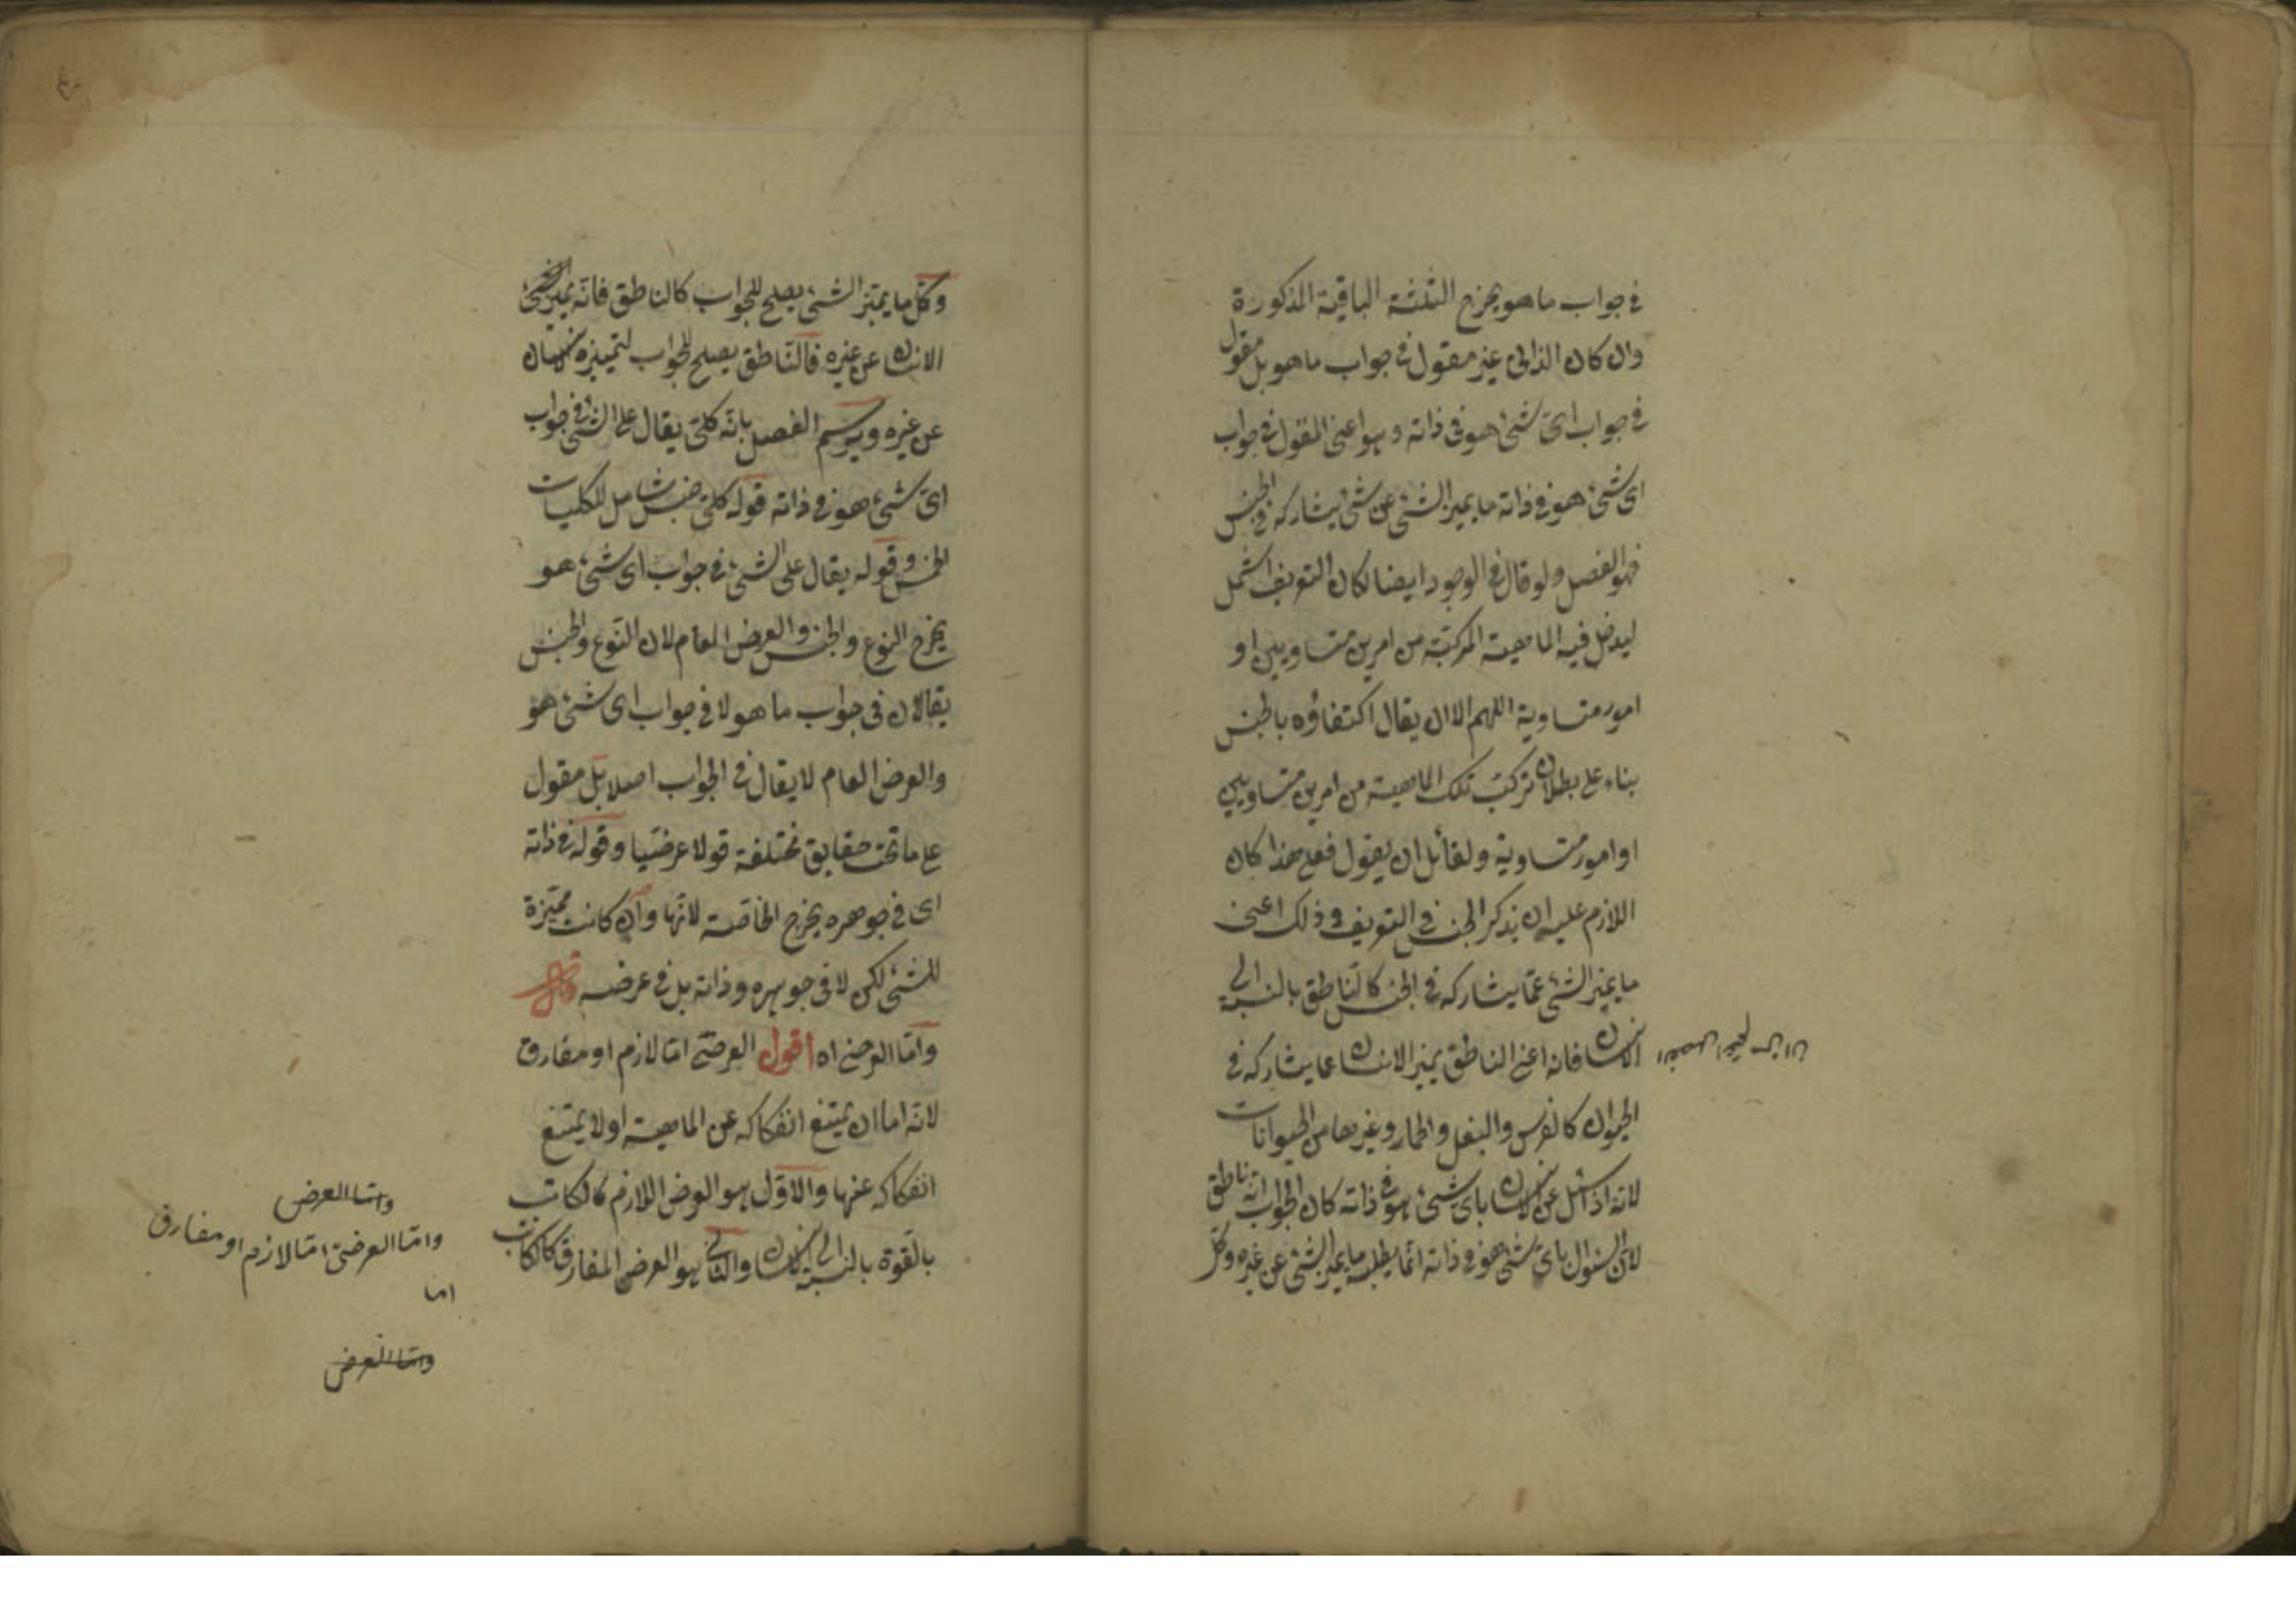 في جواب ما هو يخرج الثلثة الباقية المذكورة
وان كان الذاتى غير مقول في جواب ما هو بل مقول
في جواب اىّ شئ هو فى ذاته وهو اعنى المقول في جواب
اى شئ هو في ذاته ما يميز الشئ عن شئ يشاركه في الجنس
فهو الفصل ولو قال في الوجود ايضا لكان التعريف اشمل
ليدخل فيه الماهية المركبة من امرين متساويين او
امور متساوية اللهم الا ان يقال اكتفاؤه بالجنس
بناء على بطلان تركب تلك الماهية من امرين متساويين
او امور متساوية ولقائل ان يقول فعلى هذا كان
اللازم عليه ان يذكر الجنس في التعريف وذلك اعنى
ما يميز الشئ عمّا يشاركه في الجنس كالناطق بالنسبة الى
الانسان فانه اعنى الناطق يميز الانسان عما يشاركه في
الحيوان كالفرس والبغل والحمار وغيرها من الحيوانات
لانه اذا سئل عن الانسان باى شئ هو في ذاته كان الجواب انه ناطق
لان السئوال باىّ شئ هو في ذاته انّما يطلب ما يميز الشئ عن غيره وكلّ
وكلّ ما يميّز الشئ يصلح للجواب كالناطق فانّه يميز الشئ
الانسان عن غيره فالنّاطق يصلح للجواب لتمييزه الانسان
عن غيره ويرسم الفصل بانّه كلىّ يقال على الشئ في جواب
اىّ شئ هو في ذاته قوله كلىّ جنس شامل للكليات
الخمس وقوله يقال على الشئ في جواب اى شئ هو
يخرج النوع والجنس والعرض العام لان النّوع والجنس
يقالان فى جواب ما هو لا في جواب اى شئ هو
والعرض العام لا يقال في الجواب اصلا بل مقول
على ما تحت حقايق مختلفة قولا عرضيّا وقوله في ذاته
اى في جوهره يخرج الخاصّة لانّها وان كانت مميّزة
للشئ لكن لا فى جوهره وذاته بل في عرضه قال
وامّا العرضى اه اقول العرضىّ امّا لازم او مفارق
لانّه اما ان يمتنع انفكاكه عن الماهية او لا يمتنع
انفكاكه عنها والاوّل هو العرض اللازم كالكاتب
بالقوة بالنسبة الى الانسان والثانى هو العرض المفارق كالكاتب
وامّا العرض
وامّا العرضىّ امّا لازم او مفارق
اما
وامّا العرض